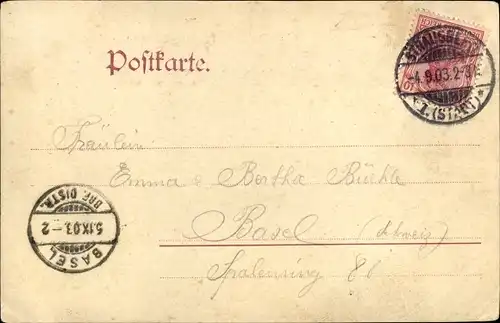 Postkarte.
-4.9.03.2-3
* 7.(STADT) *
Fräulein
Emma & Bertha Büchle
Basel (Schweiz)
Spalenring 80
BRF. DISTR.
5.IX.03.-2
BASEL